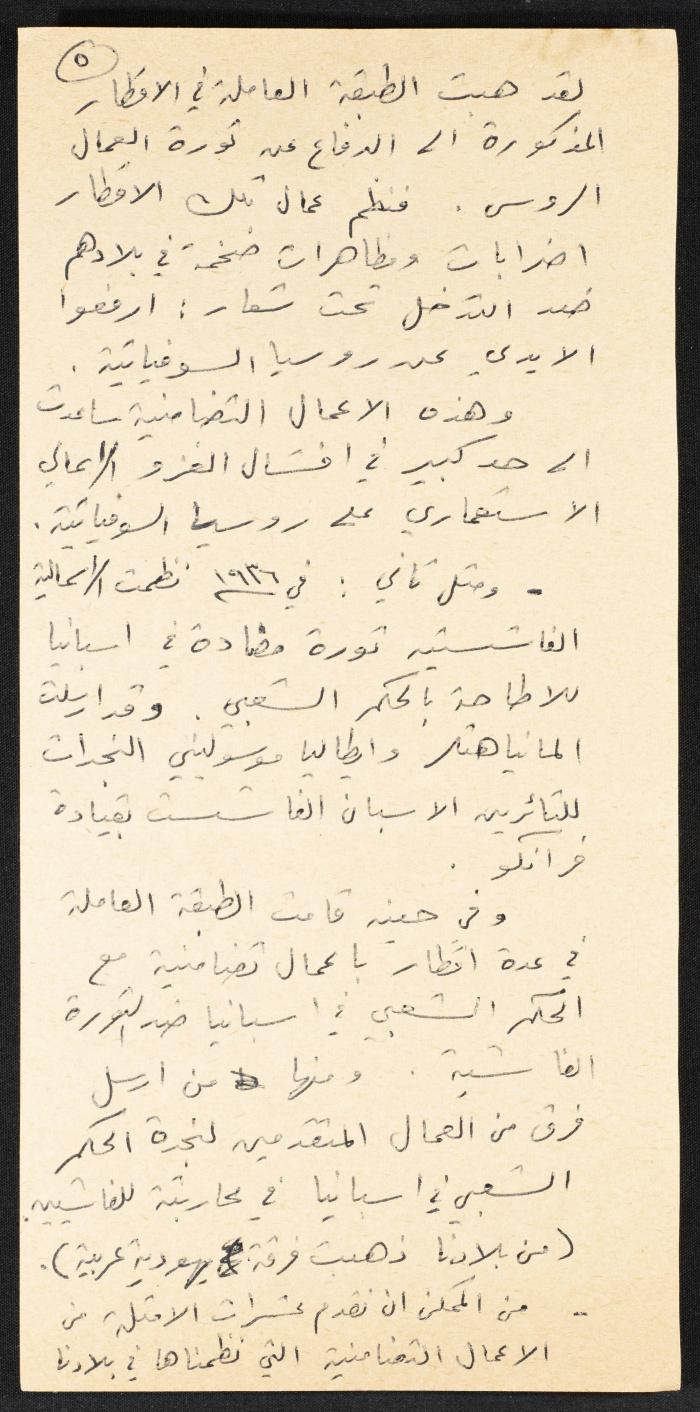 ٥
لقد هبت الطبقة العاملة في الاقطار
المذكورة الى الدفاع عن ثورة العمال
الروس . فنظم عمال تلك الاقطار
اضرابات ومظاهرات ضخمة في بلادهم
ضد التدخل تحت شعار : ارفعوا
الايدي عن روسيا السوفياتية .
وهذه الاعمال التضامنية ساعدت
الى حد كبير في افشال الغزو الرأسمالي
الاستعماري على روسيا السوفياتية .
- ومثل ثاني : في ١٩٣٦ نظمت الرأسمالية
الفاشستيه ثورة مضادة في اسبانيا
للاطاحة بالحكم الشعبي . وقد ارسلت
المانيا هتلر وايطاليا موسوليني النجدات
للثائرين الاسبان الفاشست بقيادة
فرانكو .
وفي حينه قامت الطبقة العاملة
في عدة اقطار باعمال تضامنية مع
الحكم الشعبي في اسبانيا ضد الثورة
الفاشية . ومنها من ارسل
فرق من العمال المتقدمين لنجدة الحكم
الشعبي في اسبانيا في محاربته للفاشيين.
(من بلادنا ذهبت فرقة يهودية عربية).
- من الممكن ان نقدم عشرات الامثلة من
الاعمال التضامنية التي نظمناها في بلادنا